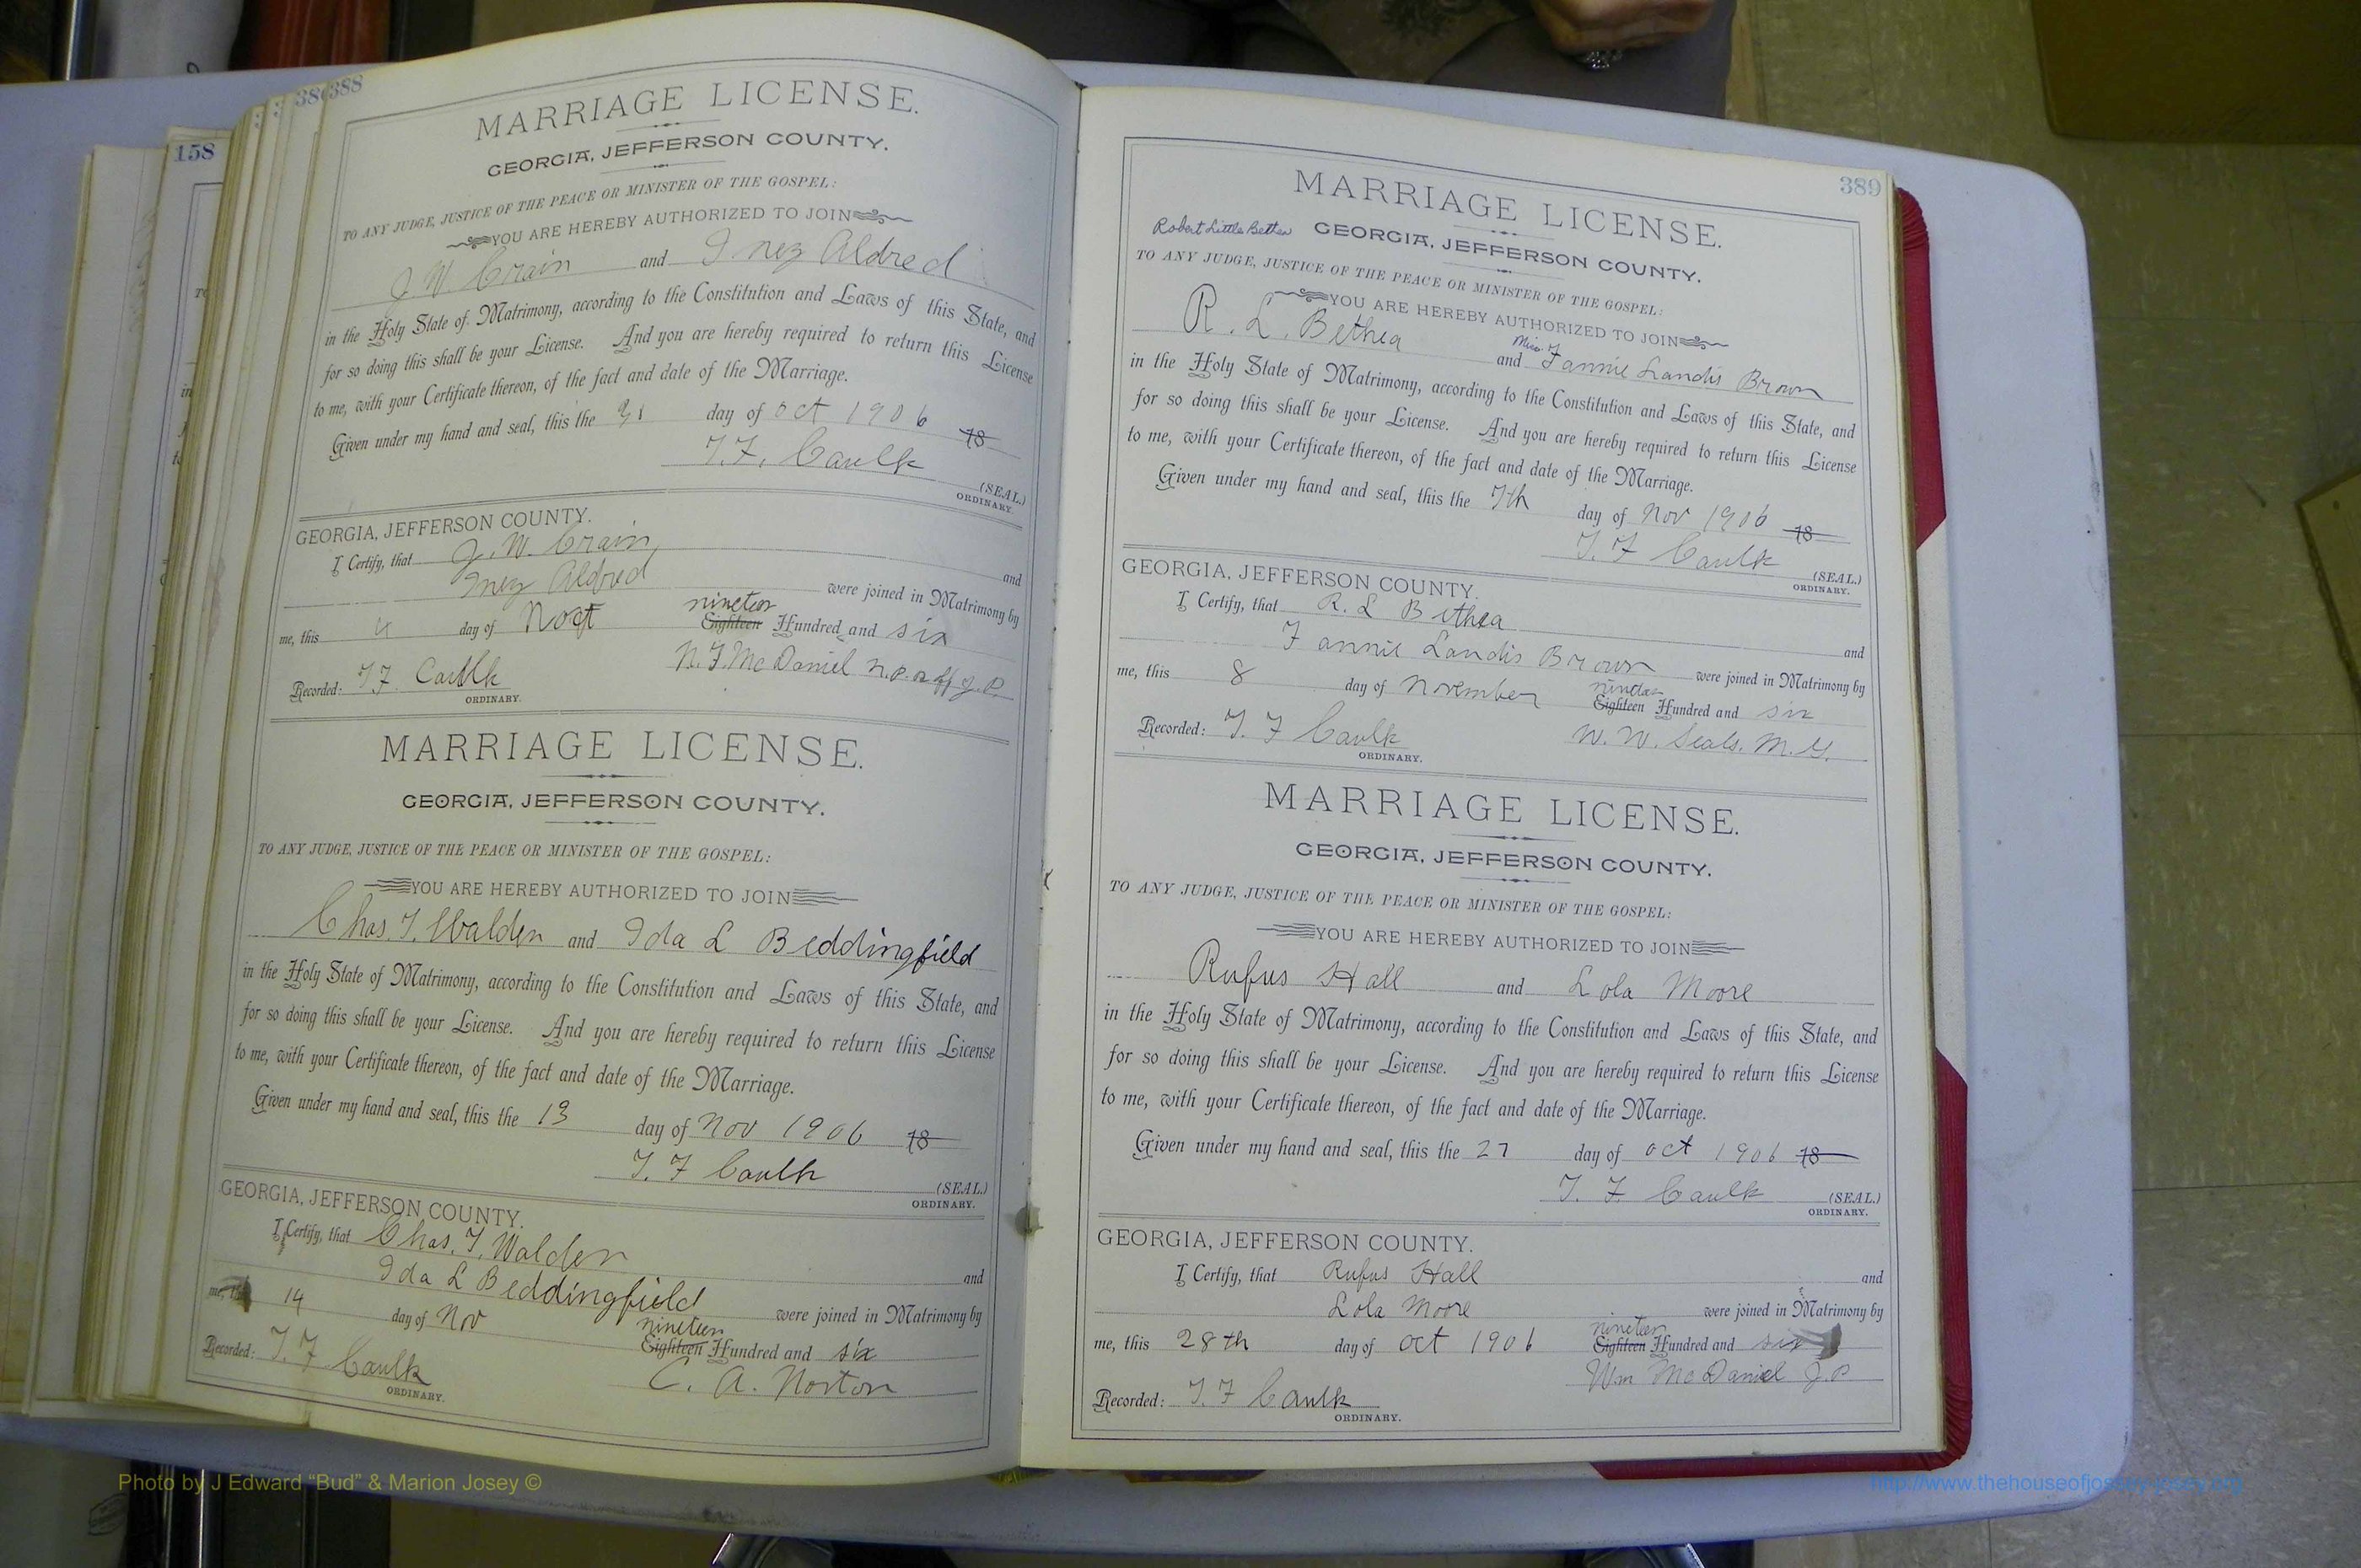 386
388
158
MARRIAGE LICENSE.
GEORGIA, JEFFERSON COUNTY.
TO ANY JUDGE, JUSTICE OF THE PEACE OR MINISTER OF THE GOSPEL:
YOU ARE HEREBY AUTHORIZED TO JOIN
J. W. Crain and Inez Aldred
in the Holy State of Matrimony, according to the Constitution and Laws of this State, and
for so doing this shall be your License. And you are hereby required to return this License
to me, with your Certificate thereon, of the fact and date of the Marriage.
Given under my hand and seal, this the 31 day of Oct 1906 18
T. F. Caulk
(SEAL.)
ORDINARY.
GEORGIA, JEFFERSON COUNTY.
I Certify, that J. W. Crain, and
Inez Aldred were joined in Matrimony by
nineteen
me, this 4 day of Eighteen Hundred and six
Recorded: T. F. Caulk N. F. McDaniel N. P. J. P.
ORDINARY.
MARRIAGE LICENSE.
GEORGIA, JEFFERSON COUNTY.
TO ANY JUDGE, JUSTICE OF THE PEACE OR MINISTER OF THE GOSPEL:
YOU ARE HEREBY AUTHORIZED TO JOIN
Chas. T. Walden and Ida L Beddingfield
in the Holy State of Matrimony, according to the Constitution and Laws of this State, and
for so doing this shall be your License. And you are hereby required to return this License
to me, with your Certificate thereon, of the fact and date of the Marriage.
Given under my hand and seal, this the 13 day of Nov 1906 18
T. F Caulk
(SEAL.)
ORDINARY.
GEORGIA, JEFFERSON COUNTY.
I Certify, that Chas. T. Walden and
Ida L Beddingfield were joined in Matrimony by
nineteen
me, 14 day of Nov Eighteen Hundred and six
Recorded: T. F Caulk C. A. Norton
ORDINARY.
389
MARRIAGE LICENSE.
Robert Little Bethea GEORGIA, JEFFERSON COUNTY.
TO ANY JUDGE, JUSTICE OF THE PEACE OR MINISTER OF THE GOSPEL:
YOU ARE HEREBY AUTHORIZED TO JOIN
R. L. Bethea and Miss Fannie Landis Brown
in the Holy State of Matrimony, according to the Constitution and Laws of this State, and
for so doing this shall be your License. And you are hereby required to return this License
to me, with your Certificate thereon, of the fact and date of the Marriage.
Given under my hand and seal, this the 7th day of Nov 1906 18
T. F Caulk
(SEAL.)
ORDINARY.
GEORGIA, JEFFERSON COUNTY.
I Certify, that R. L Bethea and
Fannie Landis Brown were joined in Matrimony by
me, this 8 day of November Eighteen Hundred and six
Recorded: T. F Caulk W. W. Seals. M. G.
ORDINARY.
MARRIAGE LICENSE.
GEORGIA, JEFFERSON COUNTY.
TO ANY JUDGE, JUSTICE OF THE PEACE OR MINISTER OF THE GOSPEL:
YOU ARE HEREBY AUTHORIZED TO JOIN
Rufus Hall and Lola Moore
in the Holy State of Matrimony, according to the Constitution and Laws of this State, and
for so doing this shall be your License. And you are hereby required to return this License
to me, with your Certificate thereon, of the fact and date of the Marriage.
Given under my hand and seal, this the 27 day of Oct 1906 18
T. F. Caulk (SEAL.)
ORDINARY.
GEORGIA, JEFFERSON COUNTY.
I Certify, that Rufus Hall and
Lola Moore were joined in Matrimony by
nineteen
me, this 28th day of Oct 1906 Eighteen Hundred and six
Recorded: T. F Caulk Wm McDaniel J. P.
ORDINARY.
Photo by J Edward “Bud” & Marion Josey ©